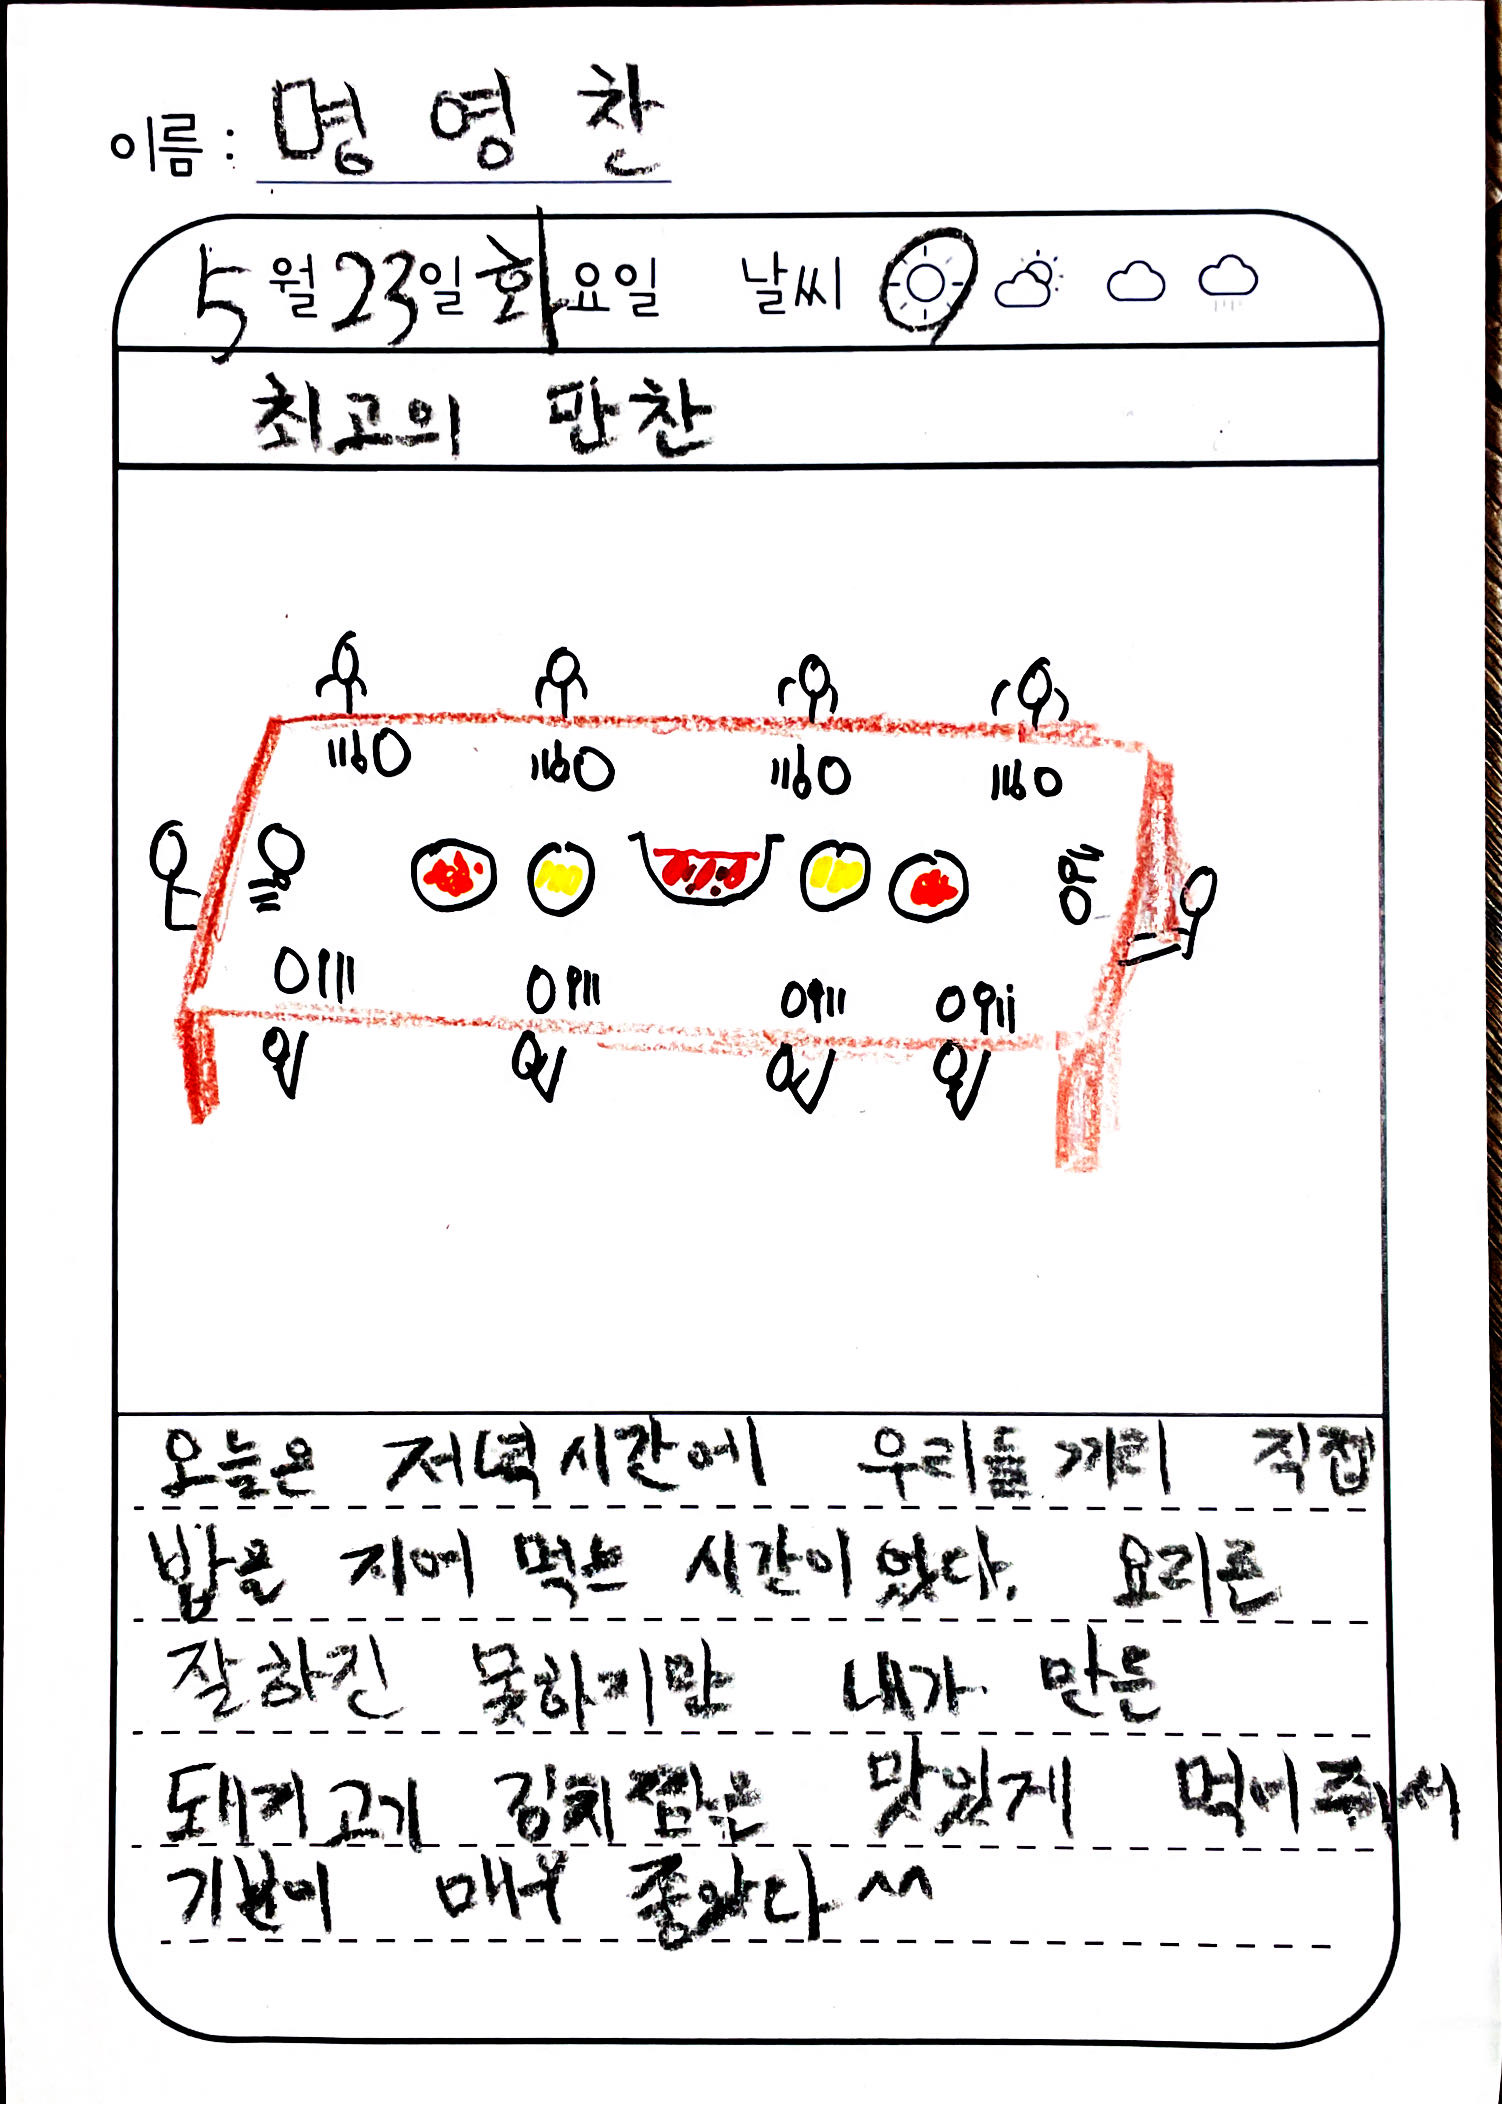 이름 : 명 영 찬
5월 23일 화요일 날씨
최고의 만찬
오늘은 저녁시간에 우리들끼리 직접
밥을 지어 먹는 시간이 었다. 요리는
잘하진 못하지만 내가 만든
돼지고기 김치찜은 맛있게 먹어줘서
기분이 매우 좋았다 ^^